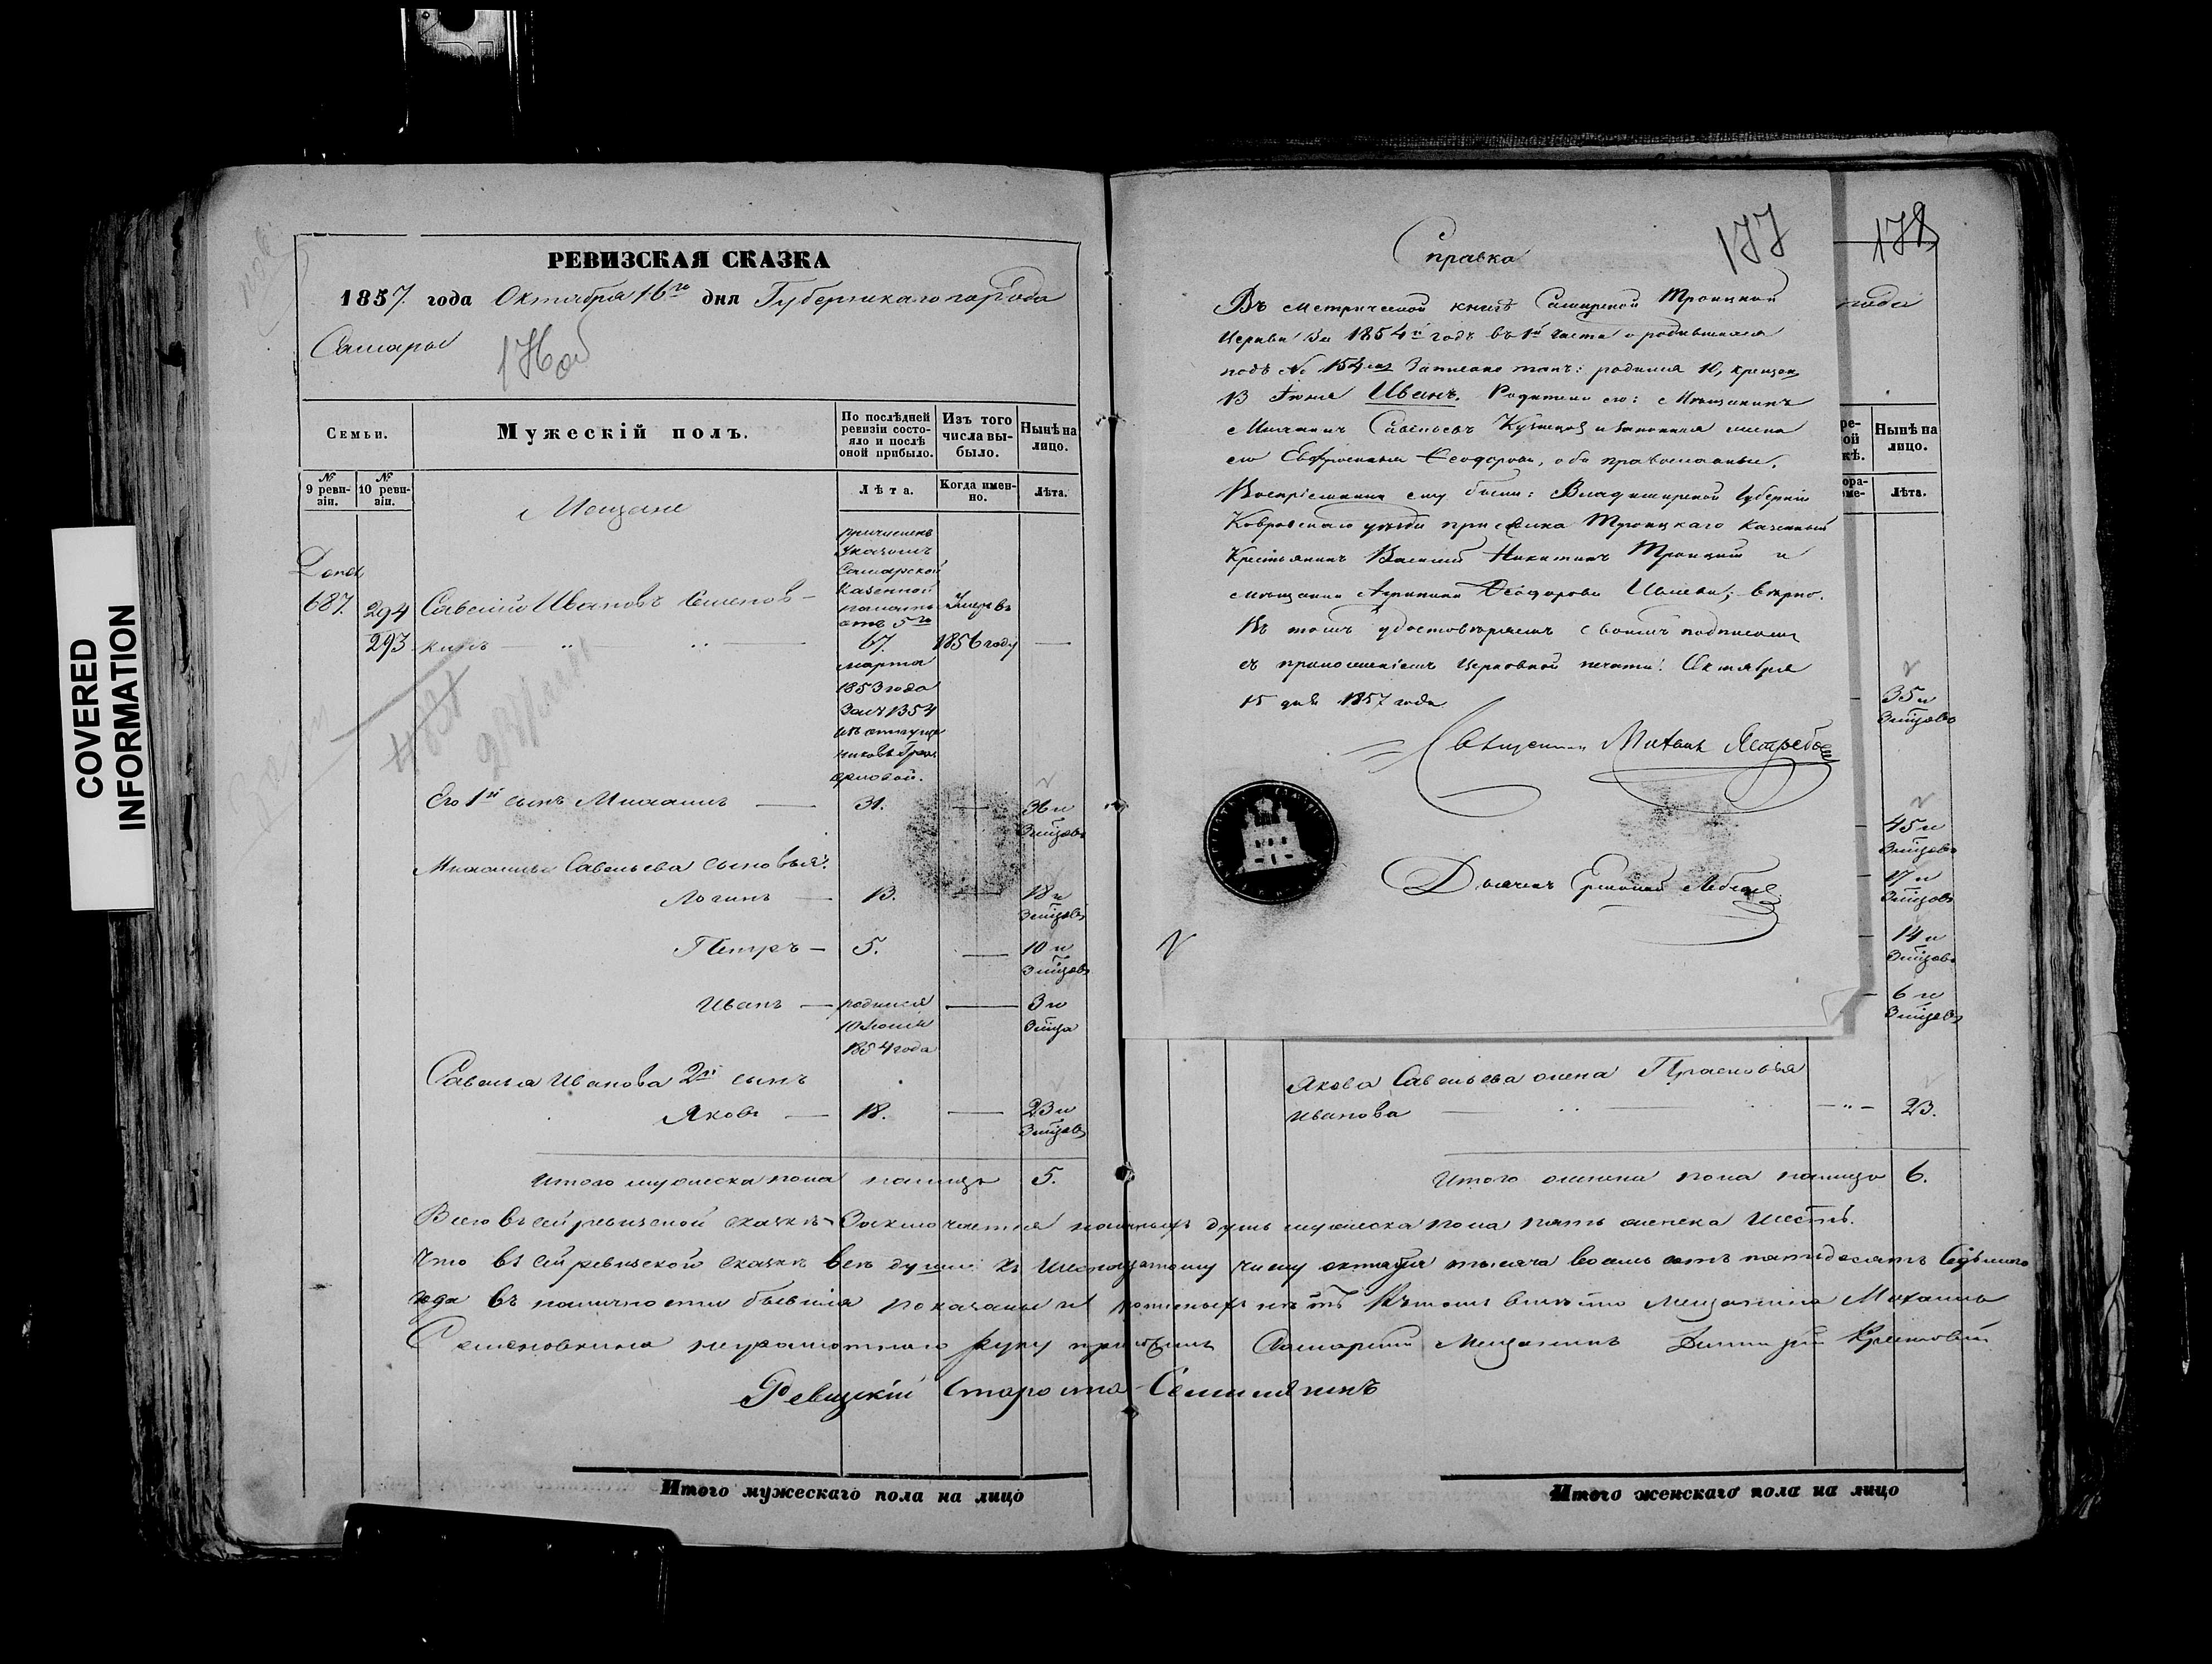 COVERED
INFORMATION
РЕВИЗСКАЯ СКАЗКА
1857. года Октября 16го дня Губернскаго города
Самары
176 об
Семьи.
Мужескій полъ.
По послѣдней ревизіи состояло и послѣ оной прибыло.
Изъ того числа выбыло.
Нынѣ на лицо.
№ 9 ревизіи.
№ 10 ревизіи.
Лѣта.
Когда именно.
Лѣта.
Мещане
687.
294
293
Савелій Ивановъ Семенов-
кинъ
причисленъ
Указомъ
Самарской
Казенной
палаты
отъ 5го
67.
марта
1853 года
За № 1354
умеръ въ
1856 году
Его 1й сынъ Михаилъ — 31. — 36 и
3 мѣцовъ
Михаилы Савельева сыновья:
Логинъ — 13. — 18 и
3 мѣцовъ
Петръ — 5. — 10 и
3 мѣцовъ
Иванъ — родился — 3 и
10 Іюня 3 мѣца
1854 года
Савелья Иванова 2й сынъ
Яковъ — 18. — 23 и
3 мѣцовъ
Итого мужеска пола налицо 5.
Справка
177
Въ метрической книгѣ Самарской Троицкой
Церкви за 1854й годъ въ 1й части о родившихся
подъ № 154 записано такъ: родился 10, крещенъ
13 Іюня Иванъ. Родители его: Мѣщанинъ
Михаилъ Савельевъ Кузнецов и законная жена
его Евфросинья Ѳеодорова, оба православные.
Воспріемники ему были: Владимирской Губерніи
Ковровскаго уѣзда Троицкаго казенный
Крестьянинъ Василій Никитинъ Троицкій и
мѣщанка Ѳеодорова; вѣрно.
Въ томъ удостовѣряемъ своимъ подписомъ
съ приложеніемъ Церковной печати. Октября
15 дня 1857 года
Священникъ Михаилъ Ястребовъ
178
года
Нынѣ на лицо.
Лѣта.
35 и
3 мѣцовъ
45 и
3 мѣцовъ
17 и
3 мѣцовъ
14 и
3 мѣцовъ
6 и
3 мѣцовъ
Якова Савельева жена Прасковья
Иванова — 23.
Итого женска пола налицо 6.
Всего въ сей ревизской сказкѣ заключается наличныхъ душъ мужеска пола пять женска шесть.
Что въ сей ревизской сказкѣ всѣ души къ шестнадцатому числу октября тысяча восемь сотъ пятьдесятъ седьмого
года въ наличности бывшія показаны и прописныхъ нѣтъ Въ томъ вмѣсто Мещанина Михаила
Семеновкина неграмотнаго руку приложилъ Самарскій Мещанинъ Дмитрій
Ревизскій Староста
Итого мужескаго пола на лицо
Итого женскаго пола на лицо